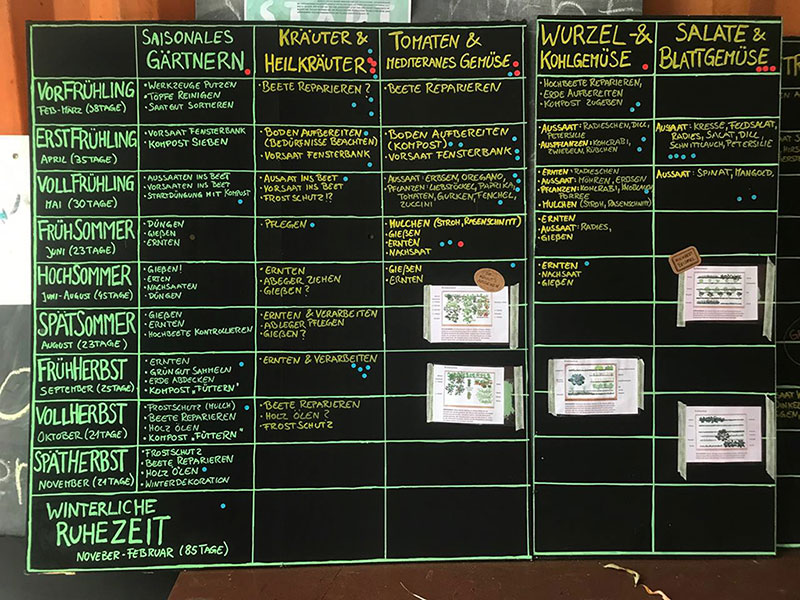 SAISONALES
GÄRTNERN
KRÄUTER &
HEILKRÄUTER
TOMATEN &
MEDITERANES GEMÜSE
WURZEL-&
KOHLGEMÜSE
SALATE &
BLATTGEMÜSE
VORFRÜHLING
FEB-MÄRZ (38TAGE)
• WERKZEUGE PUTZEN
• TÖPFE REINIGEN
• SAATGUT SORTIEREN
• BEETE REPARIEREN ?
• BEETE REPARIEREN
• HOCHBEETE REPARIEREN,
• ERDE AUFBEREITEN
• KOMPOST ZUGEBEN
ERSTFRÜHLING
APRIL (35TAGE)
• VORSAAT FENSTERBANK
• KOMPOST SIEBEN
• BODEN AUFBEREITEN
(BEDÜRFNISSE BEACHTEN)
• VORSAAT FENSTERBANK
• BODEN AUFBEREITEN
(KOMPOST)
• VORSAAT FENSTERBANK
AUSSAAT: RADIESCHEN, DILL,
PETERSILIE
AUSPFLANZEN: KOHLRABI,
ZWIEBELN, RÜBCHEN
AUSSAAT: KRESSE, FELDSALAT,
RADIES, SALAT, DILL,
SCHNITTLAUCH, PETERSILIE
VOLLFRÜHLING
MAI (30TAGE)
• AUSSAATEN INS BEET
• VORSAATEN INS BEET
• STARTDÜNGUNG MIT KOMPOST
• AUSSAAT INS BEET
• VORSAAT INS BEET
• FROSTSCHUTZ !?
AUSSAAT: ERBSEN, OREGANO,
PFLANZEN: LIEBSTÖCKEL, PAPRIKA,
TOMATEN, GURKEN, FENCHEL,
ZUCCINI
• ERNTEN: RADIESCHEN
• AUSSAAT: MÖHREN, ERBSEN
• PFLANZEN: KOHLRABI,
PORREE
• MULCHEN (STROH, RASENSCHNITT)
AUSSAAT: SPINAT, MANGOLD,
FRÜHSOMMER
JUNI (23TAGE)
• DÜNGEN
• GIEßEN
• ERNTEN
• PFLEGEN
• MULCHEN (STROH, RASENSCHNITT)
• GIEßEN
• ERNTEN
• NACHSAAT
• ERNTEN
• AUSSAAT: RADIES,
• GIEßEN
HOCHSOMMER
JUNI-AUGUST (45TAGE)
• GIEßEN!
• ERTEN
• NACHSAATEN
• DÜNGEN
• ERNTEN
• ABEGER ZIEHEN
• GIEßEN ?
• GIEßEN
• ERNTEN
• ERNTEN
• NACHSAAT
• GIEßEN
SPÄTSOMMER
AUGUST (23TAGE)
• GIEßEN
• ERNTEN
• HOCHBEETE KONTROLLIEREN
• ERNTEN & VERARBEITEN
• ABLEGER PFLEGEN
• GIEßEN ?
FRÜHHERBST
SEPTEMBER (25TAGE)
• ERNTEN
• GRÜNGUT SAMMELN
• ERDE ABDECKEN
• KOMPOST „FÜTTERN"
• ERNTEN & VERARBEITEN
VOLLHERBST
OKTOBER (21TAGE)
• FROSTSCHUTZ (MULCH)
• BEETE REPARIEREN
• HOLZ ÖLEN
• KOMPOST „FÜTTERN"
• BEETE REPARIEREN
• HOLZ ÖLEN ?
• FROSTSCHUTZ
SPÄTHERBST
NOVEMBER (21TAGE)
• FROSTSCHUTZ
• BEETE REPARIEREN
• HOLZ ÖLEN
• WINTERDEKORATION
WINTERLICHE
RUHEZEIT
NOVEBER-FEBRUAR (85TAGE)